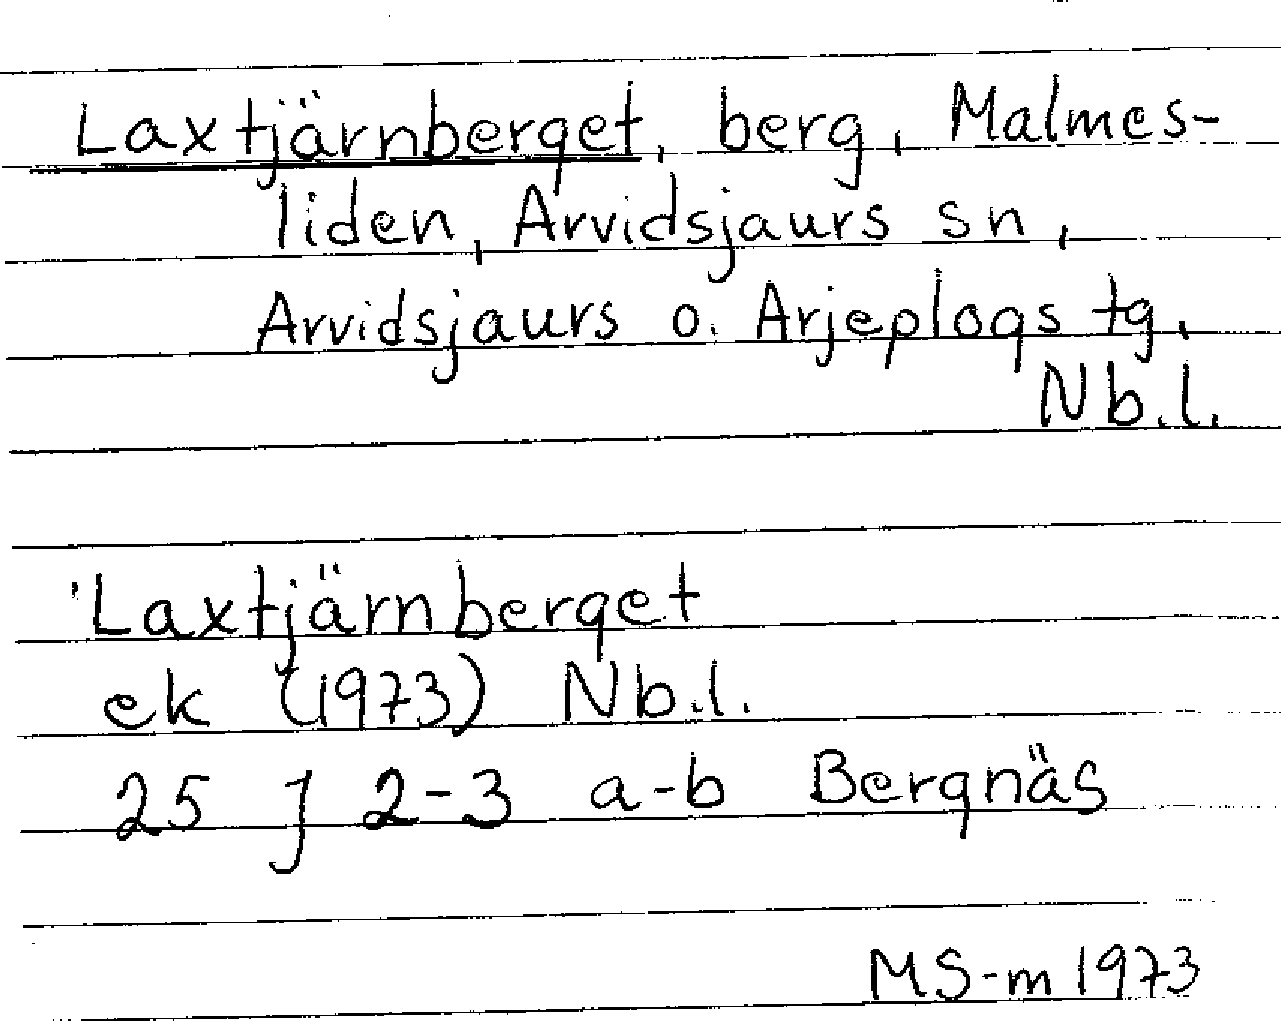 Laxtjärnberget, berg, Malmes-
liden, Arvidsjaurs sn,
Arvidsjaurs o. Arjeplogs tg,
Nb.l.
'Laxtjärnberget
ek (1973) Nb.l.
25 J 2-3 a-b Bergnäs
MS-m 1973